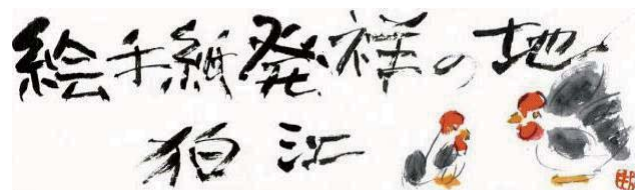 絵手紙発祥の地
狛江